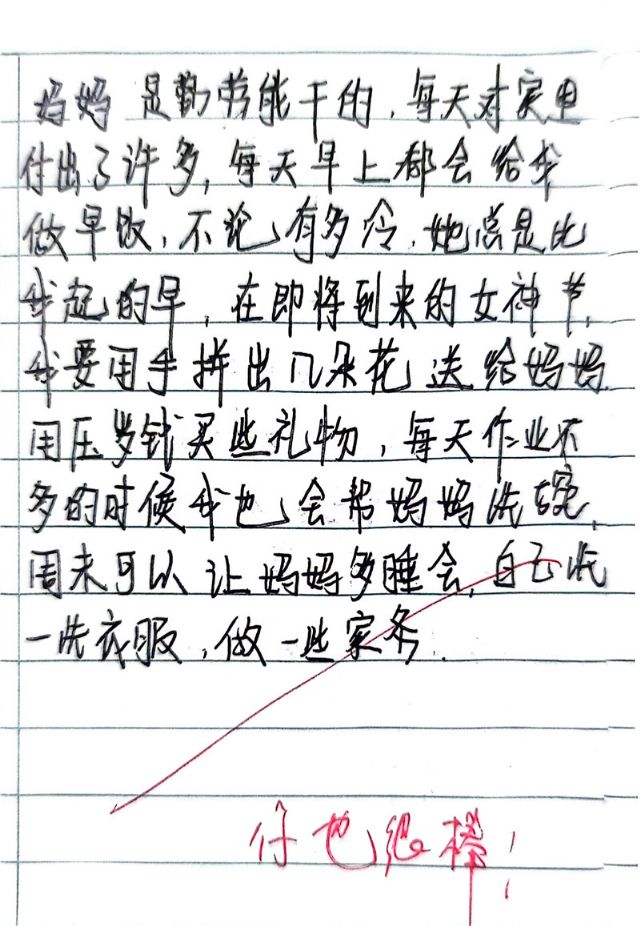 妈妈是勤劳能干的,每天对家里
付出了许多,每天早上都会给我
做早饭,不论有多冷,她总是比
我起的早,在即将到来的女神节,
我要用手拼出几朵花送给妈妈.
用压岁钱买些礼物,每天作业不
多的时候我也会帮妈妈洗碗,
周末可以让妈妈多睡会,自己洗
一洗衣服,做一些家务.
你也很棒!